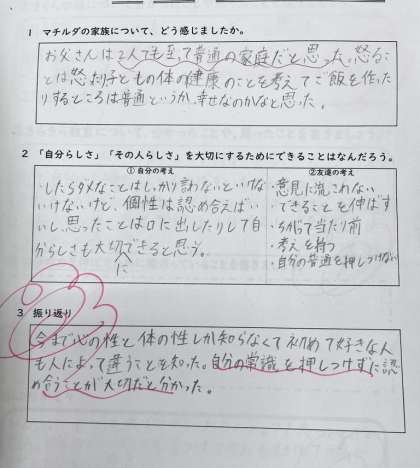 1 マチルダの家族について、どう感じましたか。
お父さんは2人でも至って普通の家庭だと思った。怒るこ
とは怒ったり子どもの体の健康のことを考えてご飯を作った
りするところは普通というか、幸せなのかなと思った。
2 「自分らしさ」「その人らしさ」を大切にするためにできることはなんだろう。
①自分の考え
・したらダメなことはしっかり言わないといけな
いけないけど、個性は認め合えばい
いし思ったことは口に出したりして自
分らしさも大切にできると思う。
②友達の考え
・意見に流されない
・できることを伸ばす
・ちがって当たり前
・考えを持つ
・自分の普通を押しつけない
3 振り返り
今まで心の性と体の性しか知らなくて初めて好きな人
も人によって違うことを知った。自分の常識を押しつけずに認
め合うことが大切だと分かった。